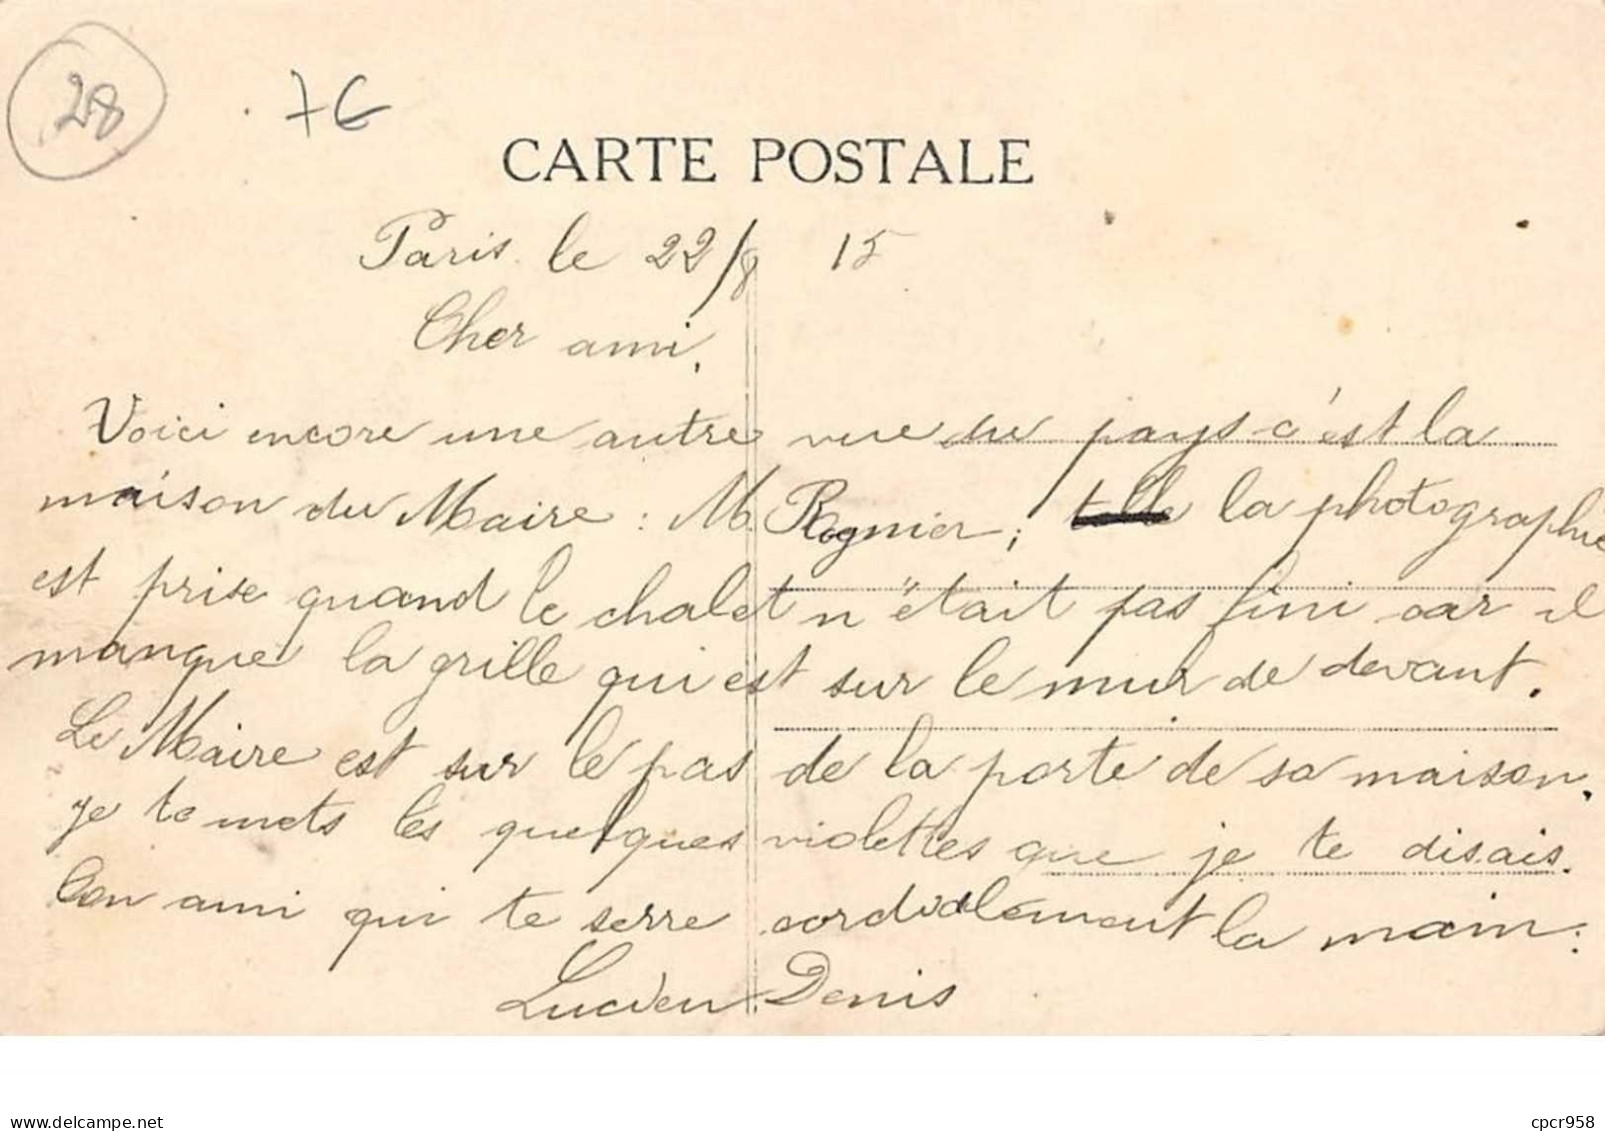 28
7€
CARTE POSTALE
Paris le 22/8 15
Cher ami,
Voici encore une autre vue du pays c'est la
maison du Maire : M. Rognier ; la photographie
est prise quand le chalet n'était pas fini car il
manque la grille qui est sur le mur de devant.
Le Maire est sur le pas de la porte de sa maison.
je te mets les quelques violettes que je te disais.
Ton ami qui te serre cordialement la main.
Lucien Denis
delcampe.net
cpcr958